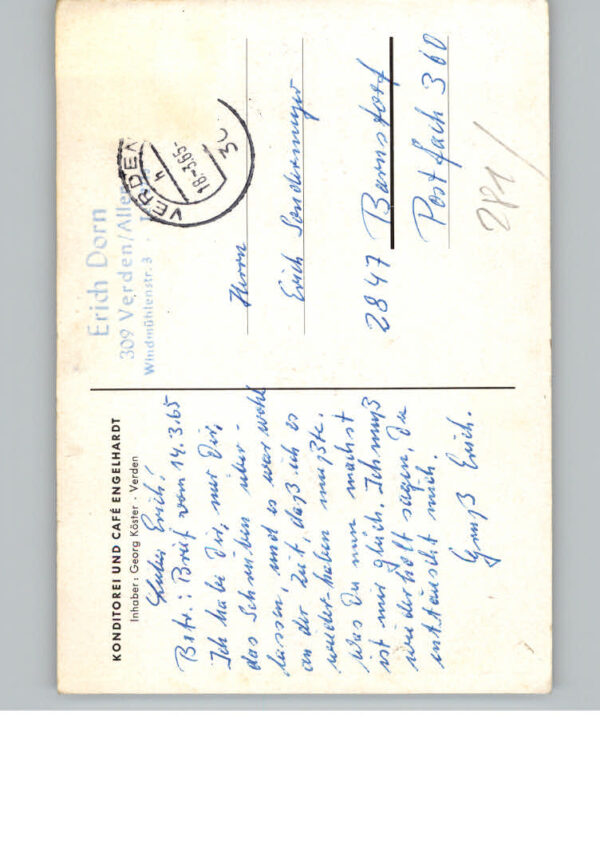 KONDITOREI UND CAFÉ ENGELHARDT
Inhaber: Georg Köster · Verden
Lieber Erich!
Betr.: Brief vom 14.3.65
Ich habe Dir, nur Dir,
das Schreiben über-
lassen, und es war wohl
an der Zeit, daß ich es
wieder haben mußte.
Was Du nun machst
ist mir gleich. Ich muß
wiederholt sagen, Du
enttäuscht mich.
Gruß Erich.
Erich Dorn
309 Verden/Aller
Windmühlenstr. 3
VERDEN
18.-3.65-
h
Herrn
Erich Sandermeyer
2847 Barnstorf
Postfach 360
281/